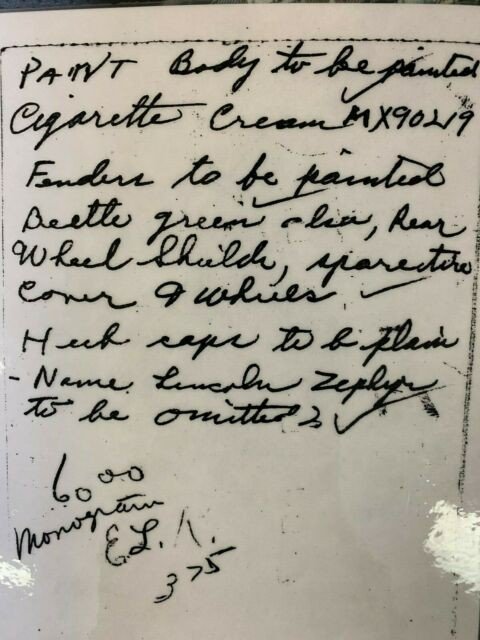 PAINT Body to be painted
Cigarette Cream MX90219
Fenders to be painted
Beetle green also, Rear
Wheel Shields, sparetire
Cover & wheels
Hub caps to be plain
- Name Lincoln Zephyr
to be omitted
6000
Monogram
E.L.K.
375